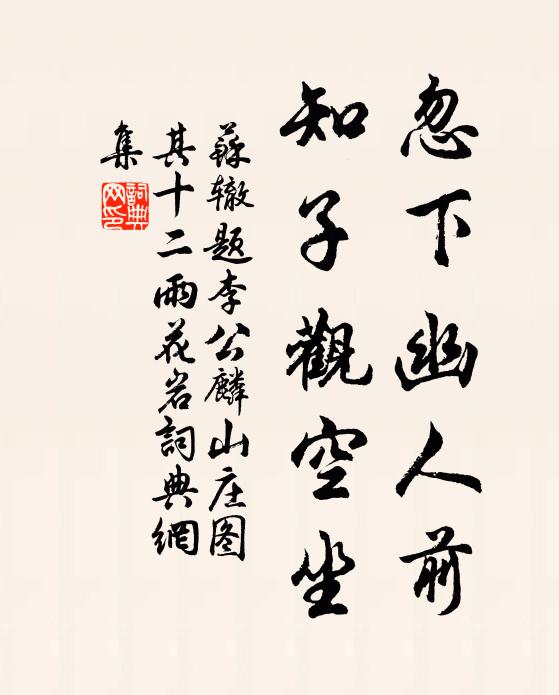 忽下幽人前
知子觀空坐
蘇辙题李公麟山庄图
其十二雨花岩詞典網
集
詞典网印